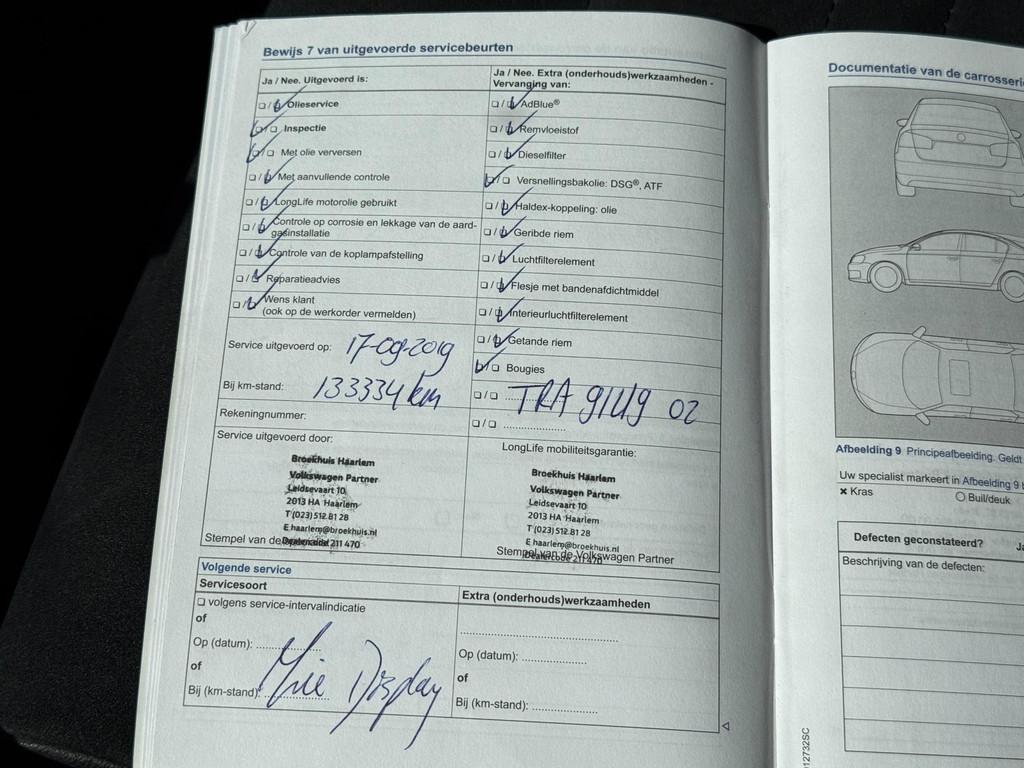 Bewijs 7 van uitgevoerde servicebeurten
Ja / Nee. Uitgevoerd is:
Olieservice
Inspectie
Met olie verversen
Met aanvullende controle
LongLife motorolie gebruikt
Controle op corrosie en lekkage van de aard-
gasinstallatie
Controle van de koplampafstelling
Reparatieadvies
Wens klant
(ook op de werkorder vermelden)
Service uitgevoerd op: 17-09-2019
Bij km-stand: 133334 km
Rekeningnummer:
Service uitgevoerd door:
Broekhuis Haarlem
Volkswagen Partner
Leidsevaart 10
2013 HA Haarlem
T (023) 512 81 28
E haarlem@broekhuis.nl
Dealercode 211 470
Stempel van de
Ja / Nee. Extra (onderhouds)werkzaamheden -
Vervanging van:
AdBlue®
Remvloeistof
Dieselfilter
Versnellingsbakolie: DSG®, ATF
Haldex-koppeling: olie
Geribde riem
Luchtfilterelement
Flesje met bandenafdichtmiddel
Interieurluchtfilterelement
Getande riem
Bougies
TRA
02
LongLife mobiliteitsgarantie:
Broekhuis Haarlem
Volkswagen Partner
Leidsevaart 10
2013 HA Haarlem
T (023) 512 81 28
E haarlem@broekhuis.nl
Dealercode 211 470
Stempel van de Volkswagen Partner
Volgende service
Servicesoort
volgens service-intervalindicatie
of
Op (datum):
of
Bij (km-stand):
Display
Extra (onderhouds)werkzaamheden
Op (datum):
of
Bij (km-stand):
Documentatie van de carrosseri
Afbeelding 9 Principeafbeelding. Geldt
Uw specialist markeert in Afbeelding 9
x Kras
Buil/deuk
Defecten geconstateerd?
Beschrijving van de defecten:
12732SC